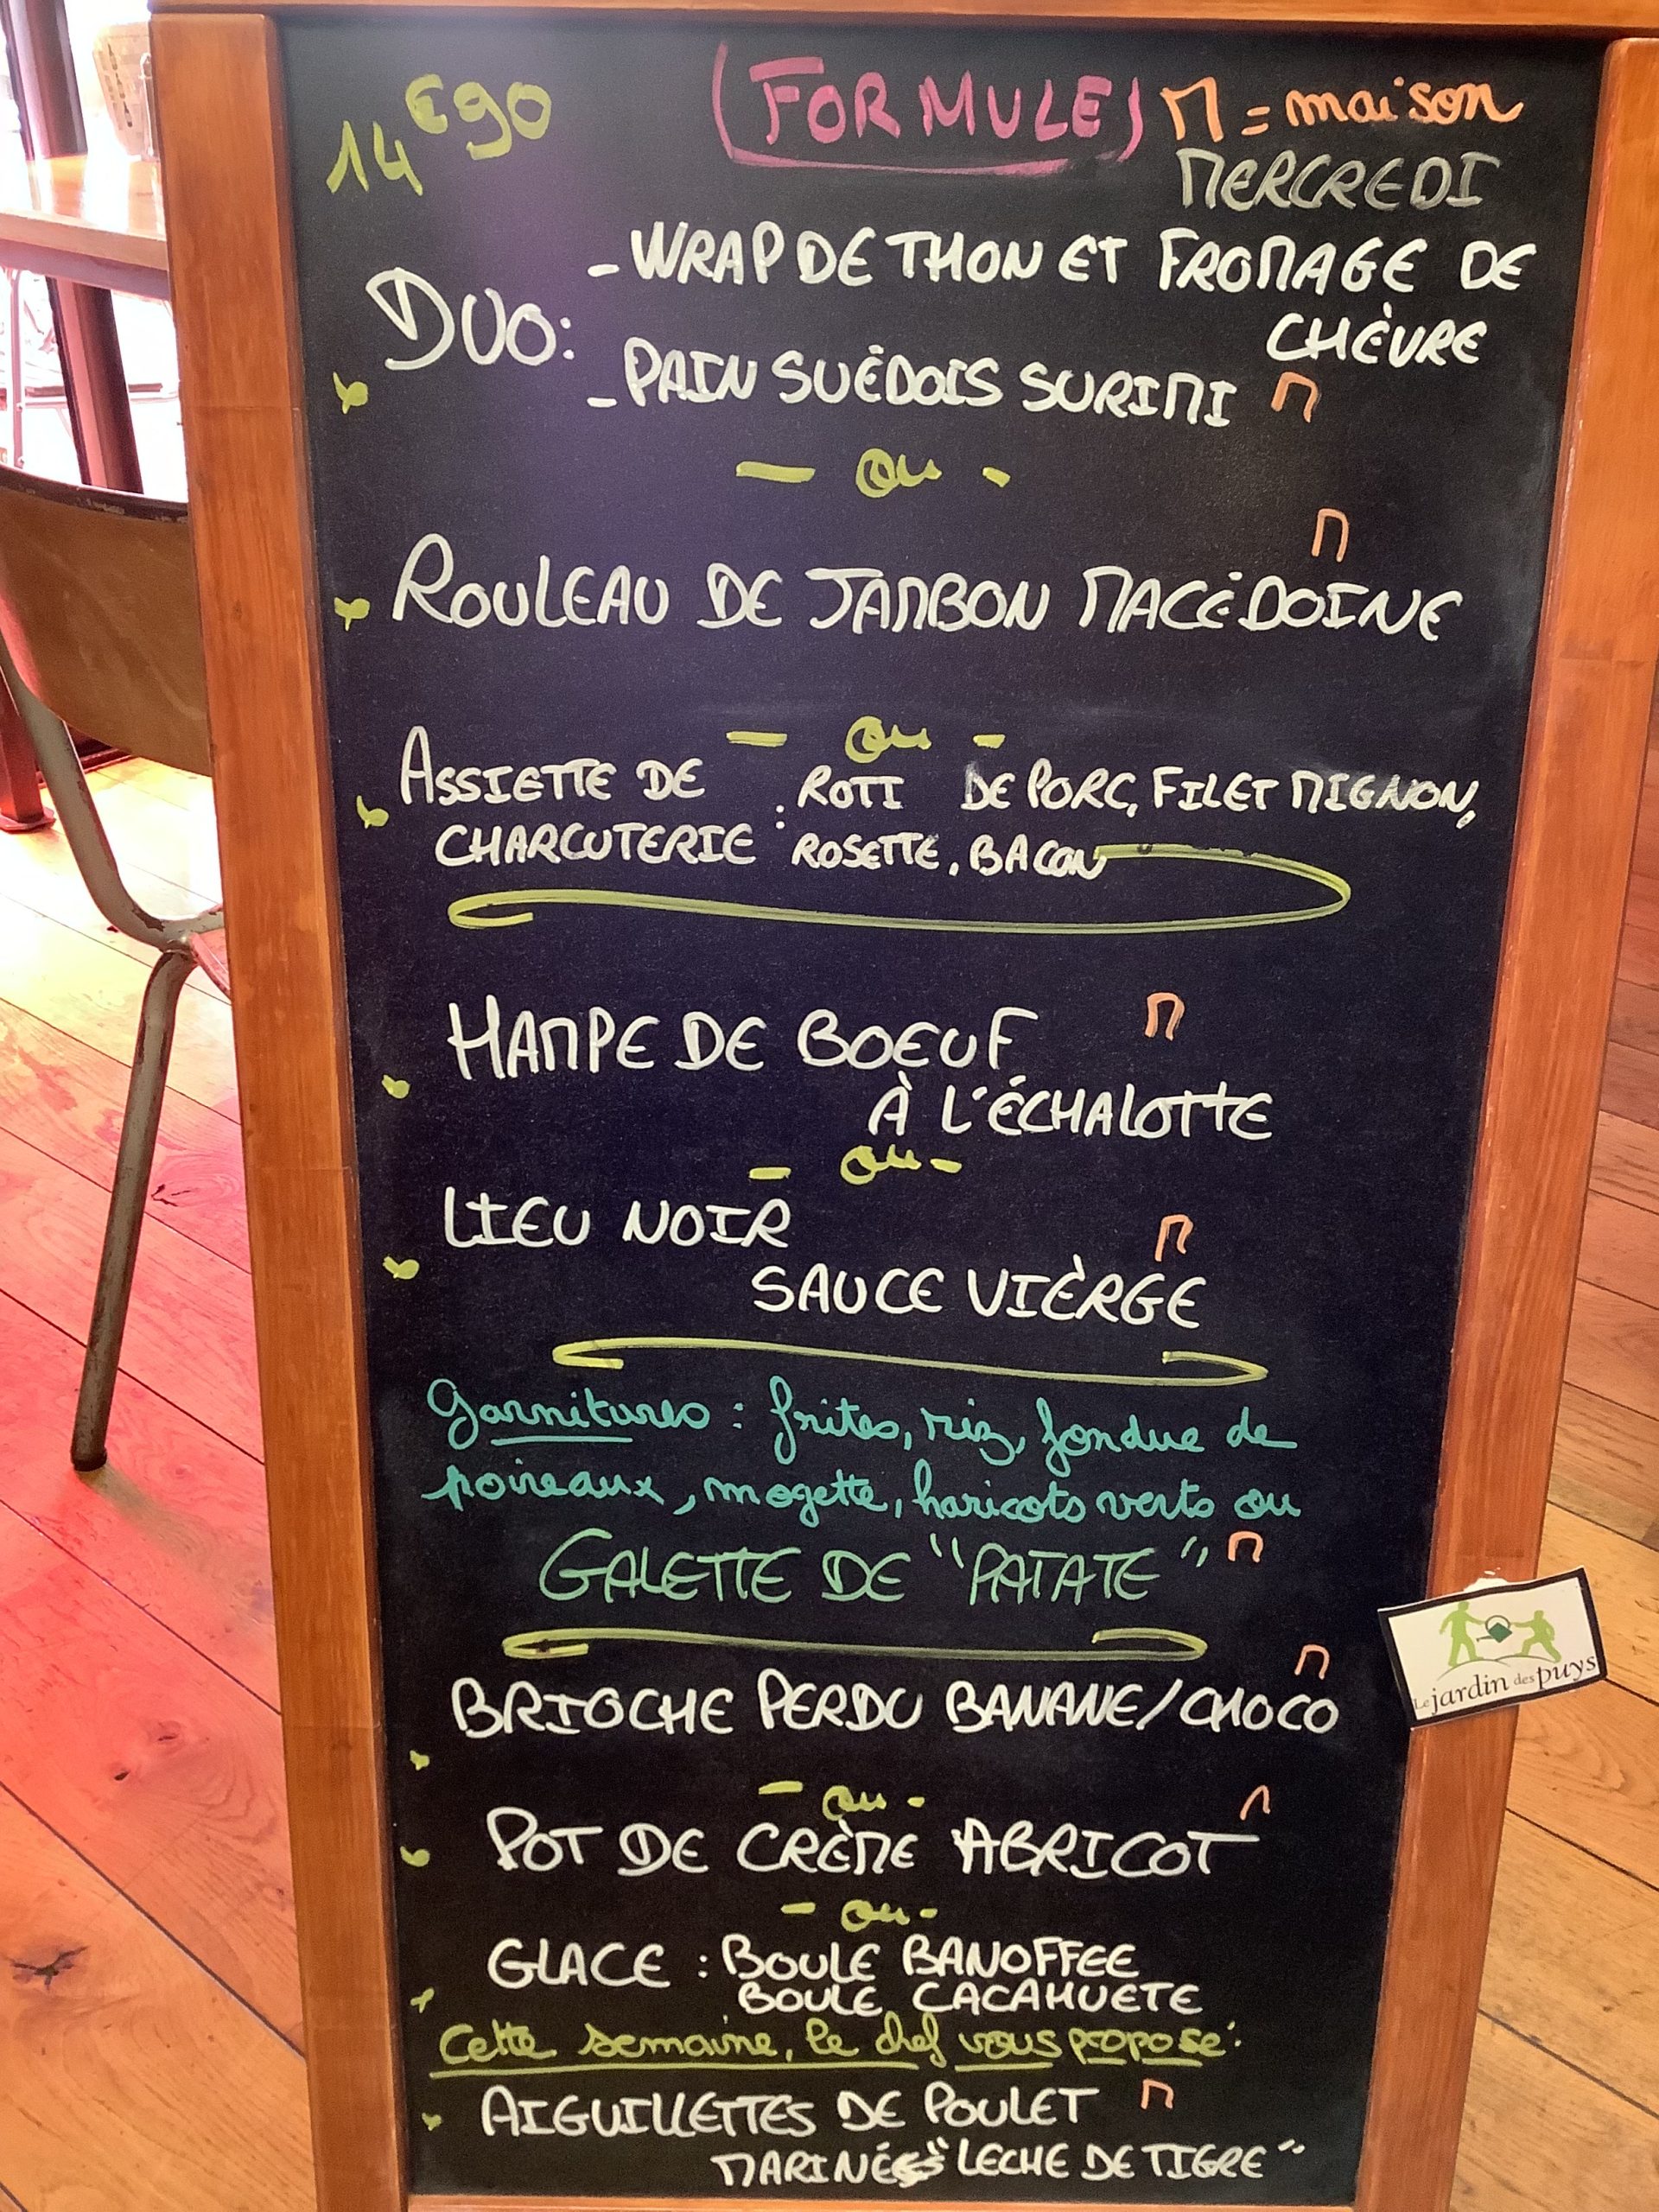 14€90
(FORMULE)
M = maison
MERCREDI
DUO:
- WRAP DE THON ET FROMAGE DE
CHÈVRE
- PAIN SUÉDOIS SURIMI M
- ou -
M
ROULEAU DE JAMBON MACÉDOINE
- ou -
ASSIETTE DE CHARCUTERIE :
ROTI DE PORC, FILET MIGNON,
ROSETTE, BACON
HAMPE DE BOEUF M
À L'ÉCHALOTTE
- ou -
LIEU NOIR M
SAUCE VIÈRGE
Garnitures : frites, riz, fondue de
poireaux, mogette, haricots verts ou
GALETTE DE "PATATE" M
M
BRIOCHE PERDU BANANE/CHOCO
- ou - M
POT DE CRÈME ABRICOT
- ou -
GLACE : BOULE BANOFFEE
BOULE CACAHUETE
Cette semaine, le chef vous propose :
AIGUILLETTES DE POULET M
MARINÉES "LECHE DE TIGRE"
Le jardin des puys